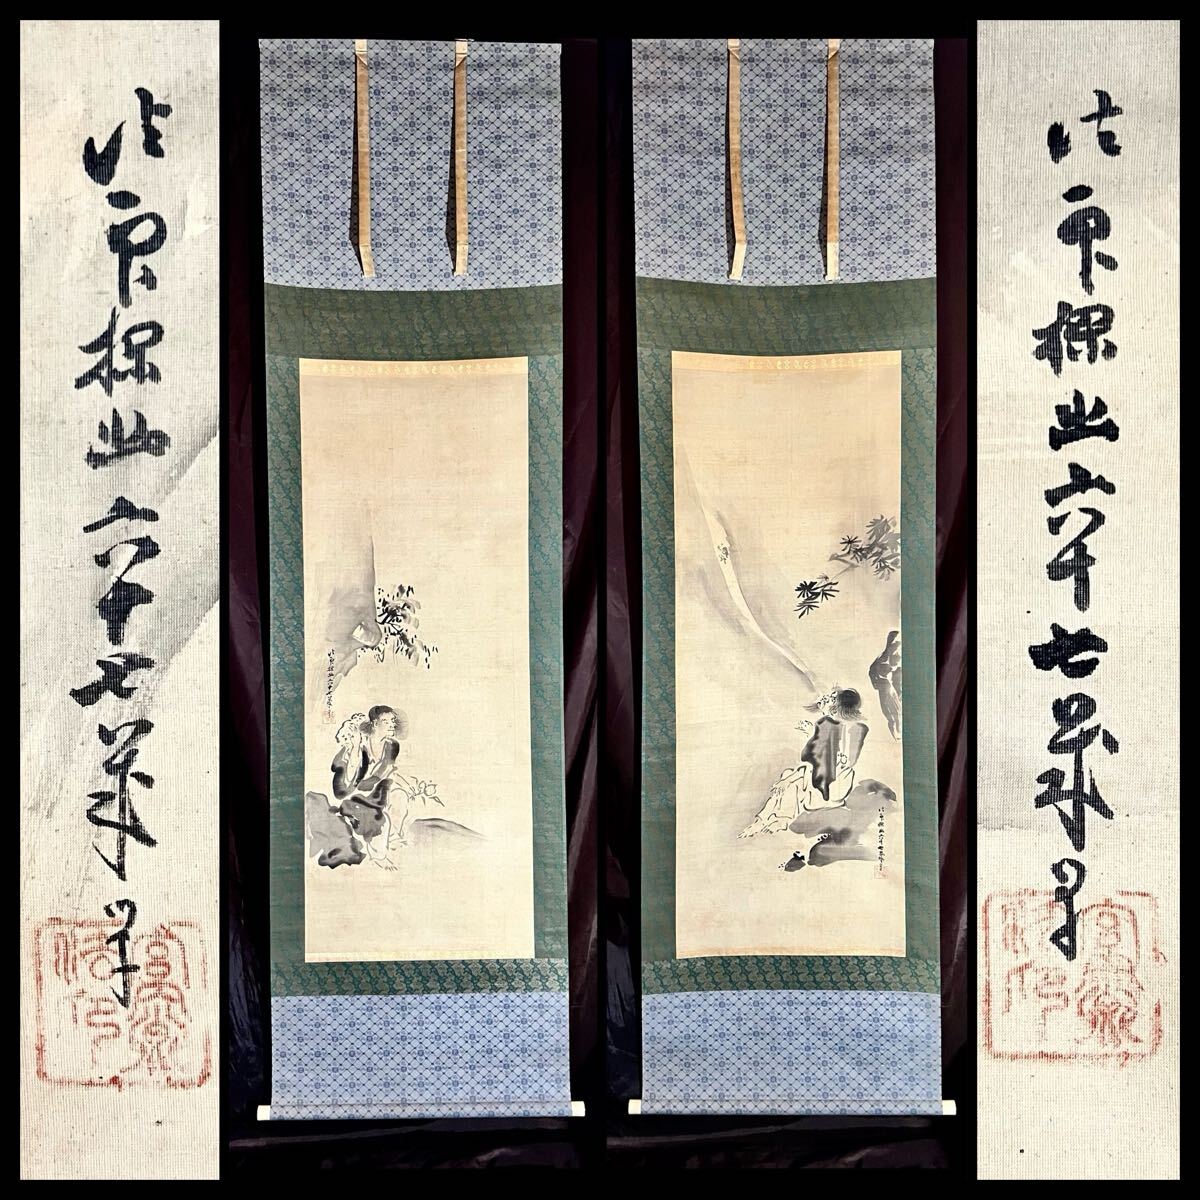 法印探幽六十七歳筆
法印探幽六十七歳筆
法印探幽六十七歳筆
法印探幽六十七歳筆